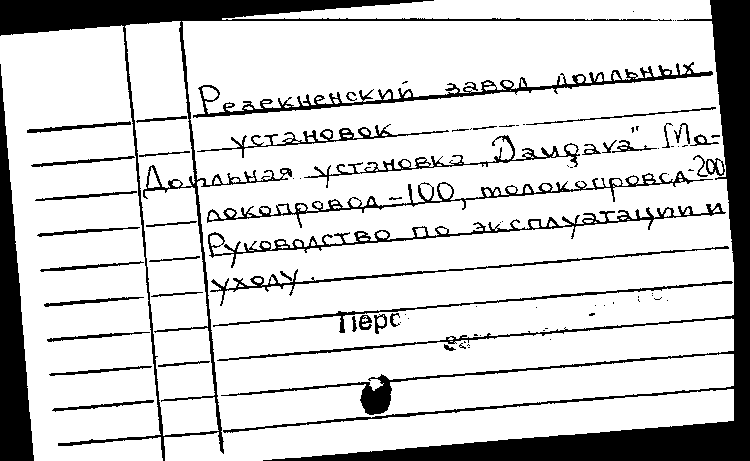 Резекненский завод доильных
установок
Доильная установка „Даугава". Мо-
локопровод-100, молокопровод-200
Руководство по эксплуатации и
уходу.